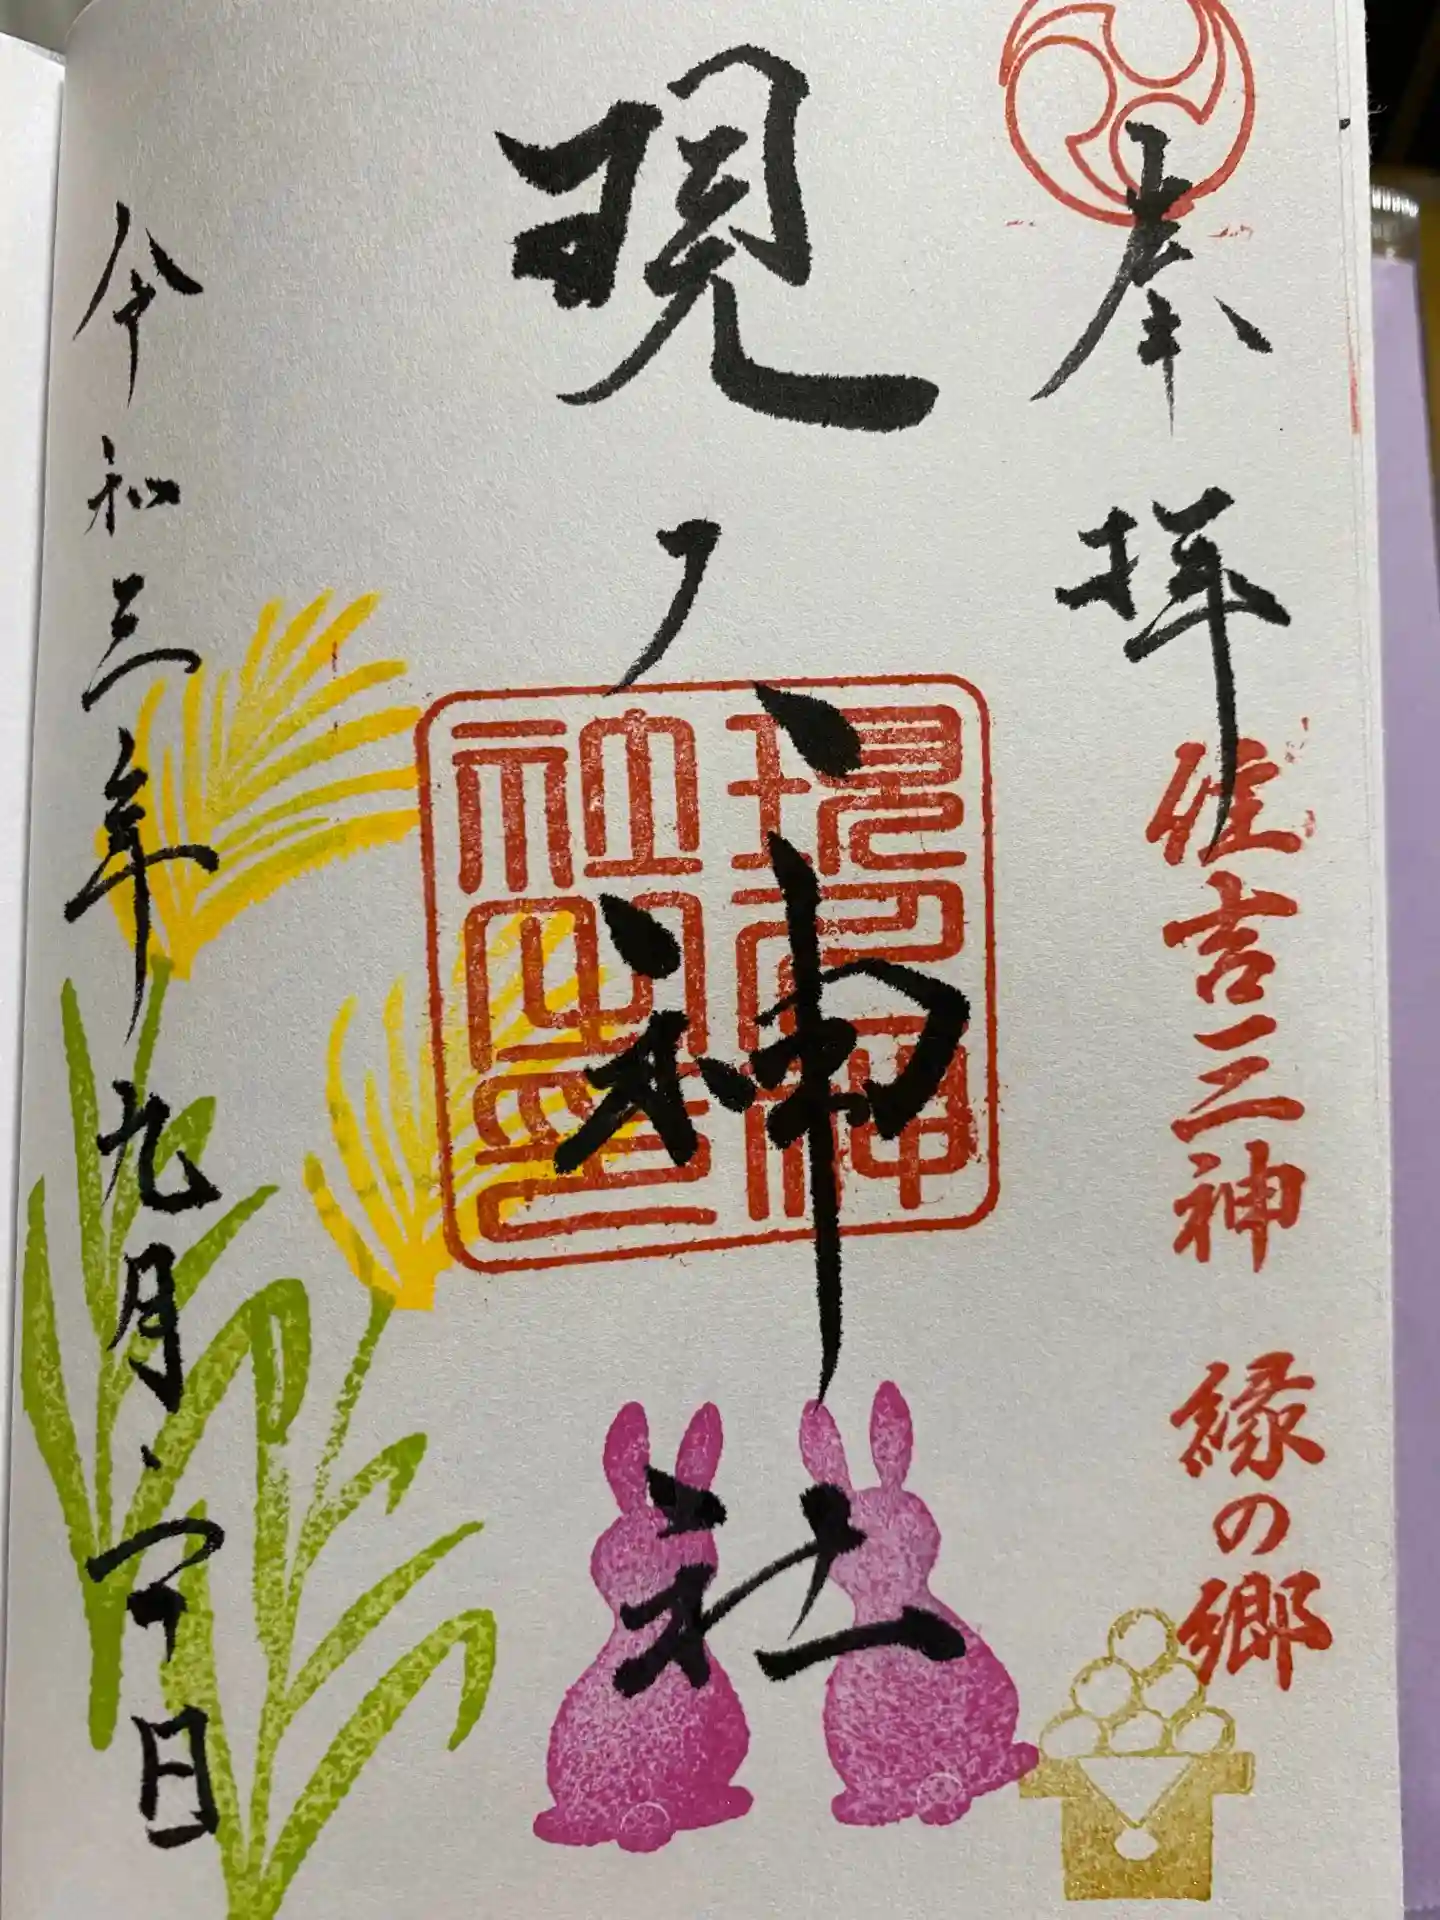 奉拝
住吉三神 縁の郷
現人神社
現人神
社之印
令和三年九月 日